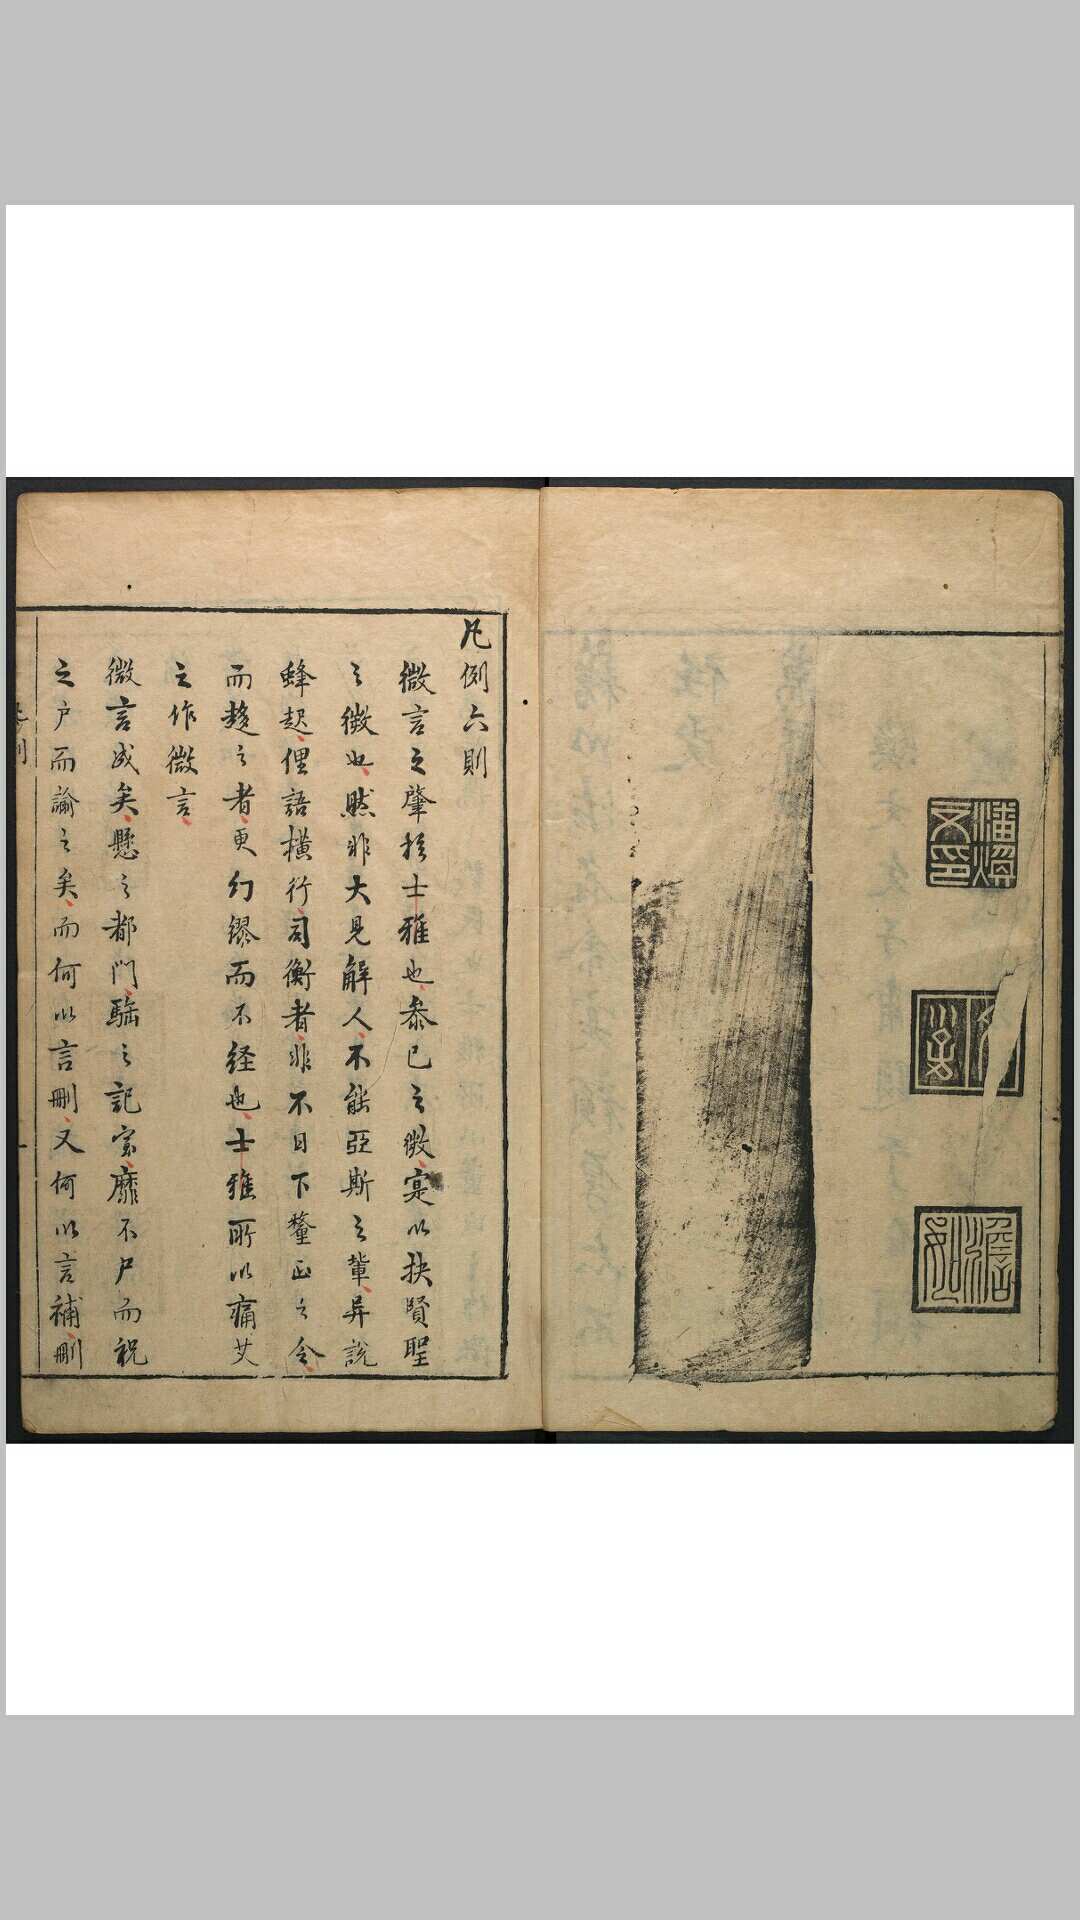 凡例六則
微言之肇於士雅也叅已之微寔以抉賢聖
之微也然非大見解人不能亞斯之輩异說
蜂起俚語橫行司衡者非不日下釐正之令
而趍之者更幻繆而不経也士雅所以痛艾
之作微言
微言成矣懸之都門之記室靡不尸而祝
之户而諭之矣而何以言刪又何以言補刪